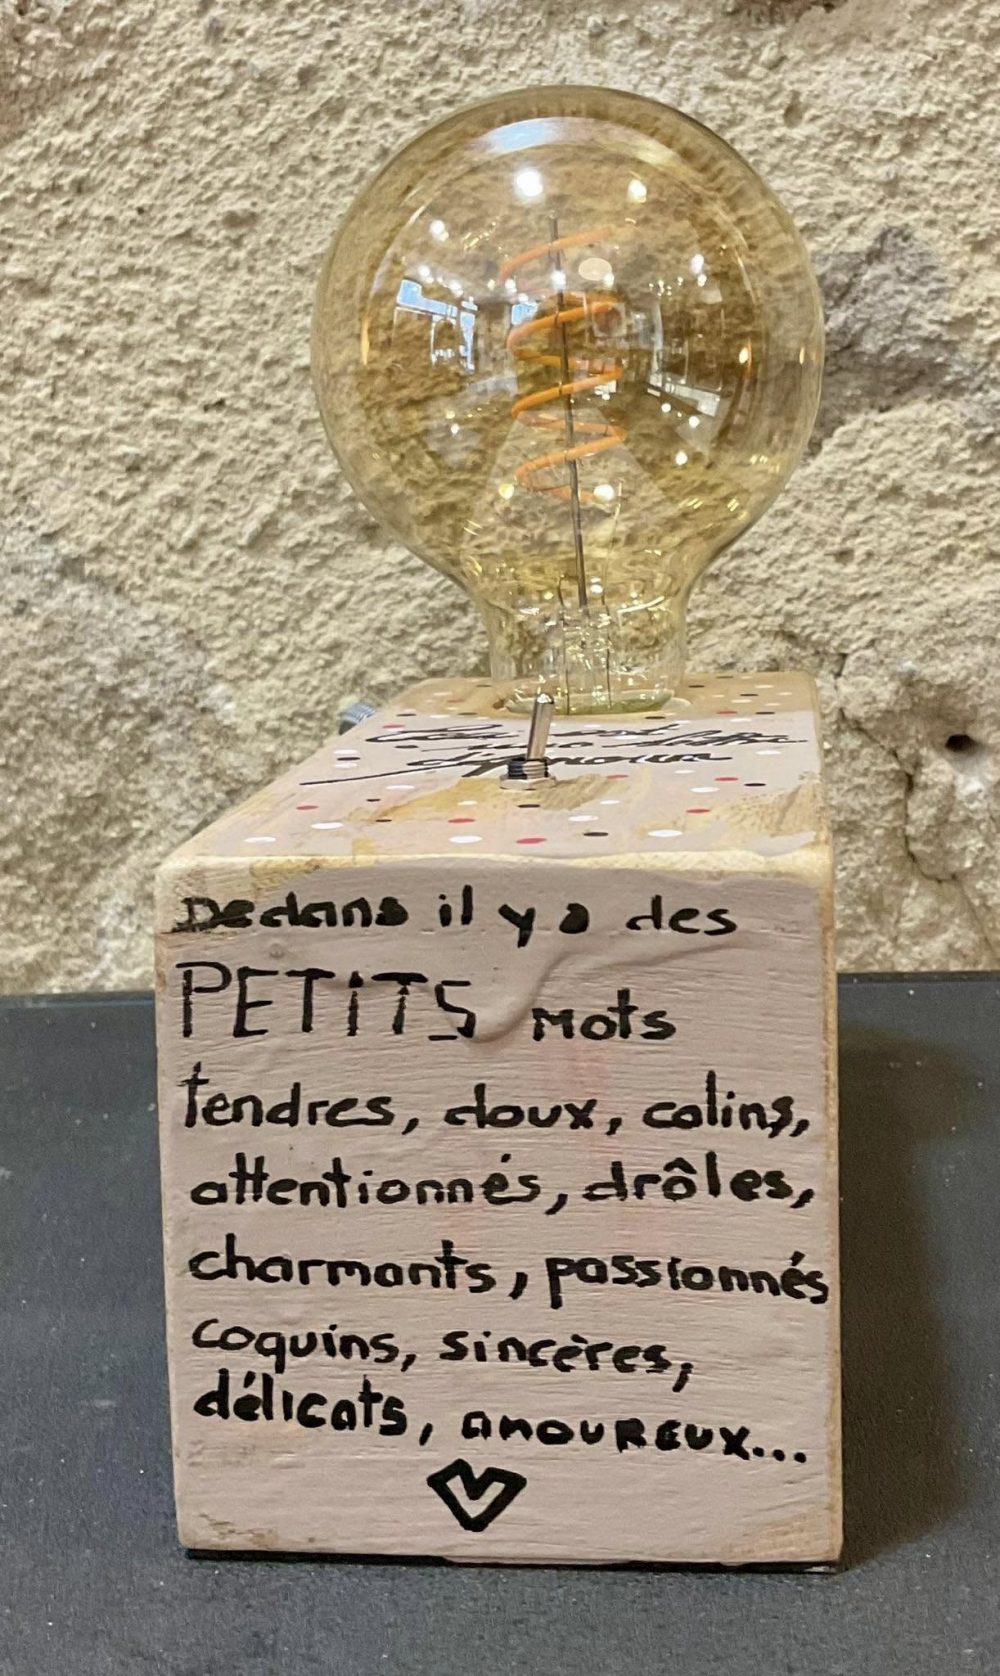 Ceci est
une lettre
d'amour
Dedans il y a des
PETITS mots
tendres, doux, calins,
attentionnés, drôles,
charmants, passionnés
coquins, sincères,
délicats, amoureux...